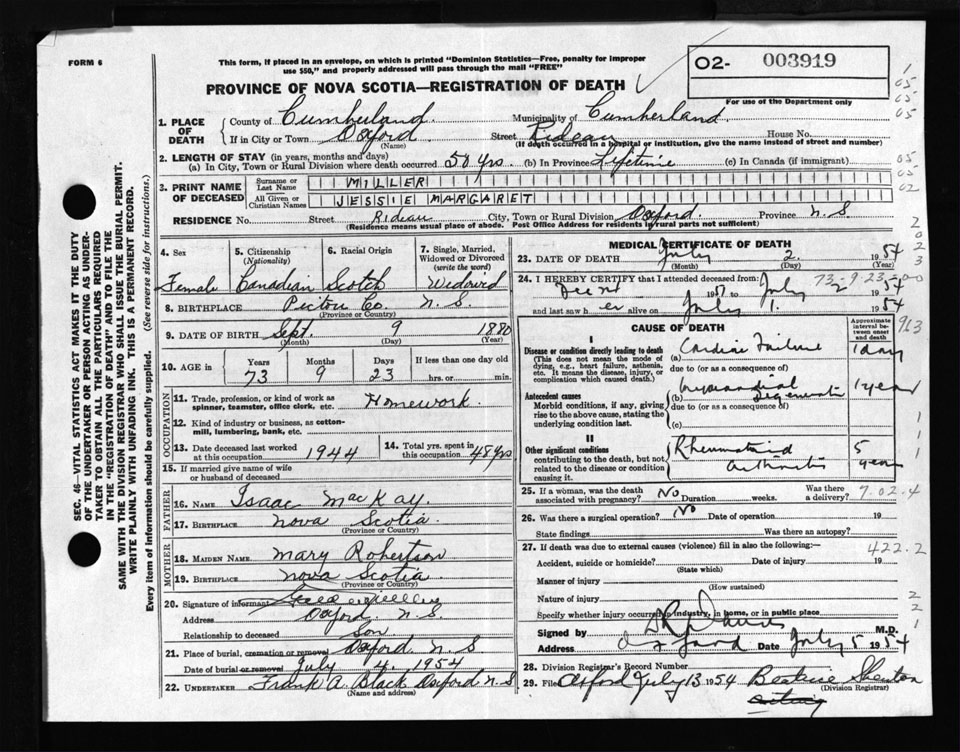 FORM 6
This form, if placed in an envelope, on which is printed "Dominion Statistics—Free, penalty for improper
use $50," and properly addressed will pass through the mail "FREE"
O2- 003919
For use of the Department only
PROVINCE OF NOVA SCOTIA—REGISTRATION OF DEATH
1. PLACE OF DEATH
County of Cumberland Municipality of Cumberland
If in City or Town Oxford (Name) Street Rideau House No.
(If death occurred in a hospital or institution, give the name instead of street and number)
2. LENGTH OF STAY (in years, months and days)
(a) In City, Town or Rural Division where death occurred 50 yrs. (b) In Province Lifetime (c) In Canada (if immigrant)
3. PRINT NAME OF DECEASED
Surname or Last Name MILLER
All Given or Christian Names JESSIE MARGARET
RESIDENCE No. Street Rideau City, Town or Rural Division Oxford. Province N.S
(Residence means usual place of abode. Post Office Address for residents in rural parts not sufficient)
4. Sex Female
5. Citizenship (Nationality) Canadian
6. Racial Origin Scotch
7. Single, Married, Widowed or Divorced (write the word) Widowed
8. BIRTHPLACE Pictou Co. N.S.
(Province or Country)
9. DATE OF BIRTH Sept 9 1880
(Month) (Day) (Year)
10. AGE in Years 73 Months 9 Days 23 If less than one day old hrs. or min.
OCCUPATION
11. Trade, profession, or kind of work as spinner, teamster, office clerk, etc. Homework.
12. Kind of industry or business, as cotton-mill, lumbering, bank, etc.
13. Date deceased last worked at this occupation 1944
14. Total yrs. spent in this occupation 48 yrs
15. If married give name of wife or husband of deceased
FATHER
16. NAME Isaac MacKay.
17. BIRTHPLACE Nova Scotia.
(Province or Country)
MOTHER
18. MAIDEN NAME Mary Robertson
19. BIRTHPLACE Nova Scotia
(Province or Country)
20. Signature of informant
Address Oxford. N.S.
Relationship to deceased Son
21. Place of burial, cremation or removal Oxford N.S
Date of burial or removal July 4. 1954
22. UNDERTAKER Frank A. Black Oxford N.S
(Name and address)
MEDICAL CERTIFICATE OF DEATH
23. DATE OF DEATH July 2. 1954
(Month) (Day)
24. I HEREBY CERTIFY that I attended deceased from:
1951 July 1954
and last saw her alive on July 1. 1954
73-9-23-00
CAUSE OF DEATH
Approximate interval between onset and death
I
Disease or condition directly leading to death
(This does not mean the mode of dying, e.g., heart failure, asthenia, etc. It means the disease, injury, or complication which caused death.)
(a) Cardiac Failure 1 day
due to (or as a consequence of)
Antecedent causes
Morbid conditions, if any, giving rise to the above cause, stating the underlying condition last.
(b) Myocardial Degeneration 1 year
due to (or as a consequence of)
(c)
II
Other significant conditions
contributing to the death, but not related to the disease or condition causing it.
Rheumatoid arthritis 5 years
25. If a woman, was the death associated with pregnancy? No Duration weeks. Was there a delivery?
26. Was there a surgical operation? No Date of operation 19
State findings Was there an autopsy?
27. If death was due to external causes (violence) fill in also the following:-
422.2
Accident, suicide or homicide? Date of injury 19
(State which)
Manner of injury
(How sustained)
Nature of injury
Specify whether injury occurred in industry, in home, or in public place
Signed by M.D.
Address Oxford Date July 5 1954
28. Division Registrar's Record Number
29. File Oxford July 13 1954 Beatrice
(Division Registrar)
SEC. 46—VITAL STATISTICS ACT MAKES IT THE DUTY
OF THE UNDERTAKER OR PERSON ACTING AS UNDER-
TAKER TO OBTAIN ALL THE PARTICULARS REQUIRED
IN THE "REGISTRATION OF DEATH" AND TO FILE THE
SAME WITH THE DIVISION REGISTRAR WHO SHALL ISSUE THE BURIAL PERMIT.
WRITE PLAINLY WITH UNFADING INK. THIS IS A PERMANENT RECORD.
Every item of information should be carefully supplied. (See reverse side for instructions.)